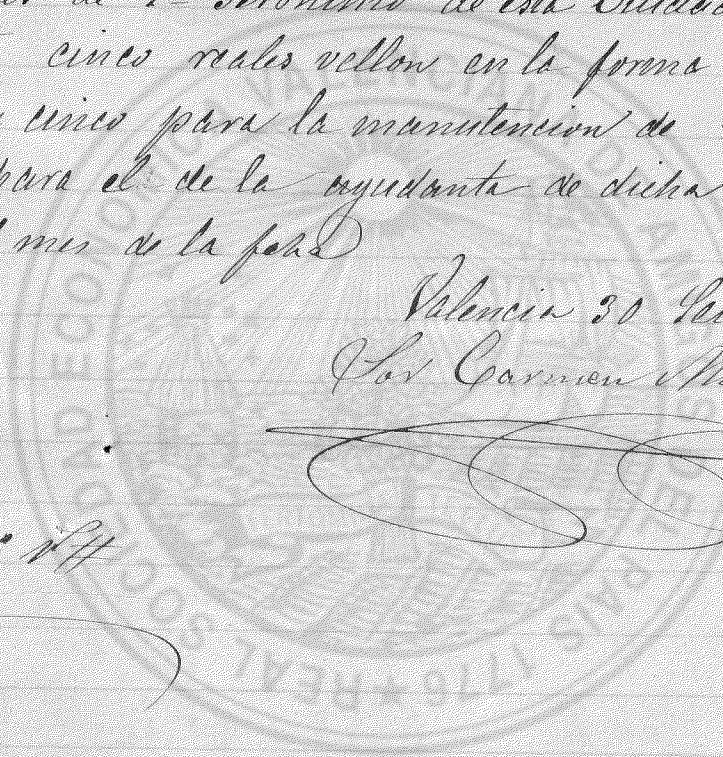 de esta
cinco reales vellon en la forma
cinco para la manutencion de
para el de la ayudanta de dicha
mes de la fcha
Valencia 30
Sor Carmen
rvn
REAL SOCIEDAD ECONOMICA VALENCIANA DE AMIGOS DEL PAIS 1776